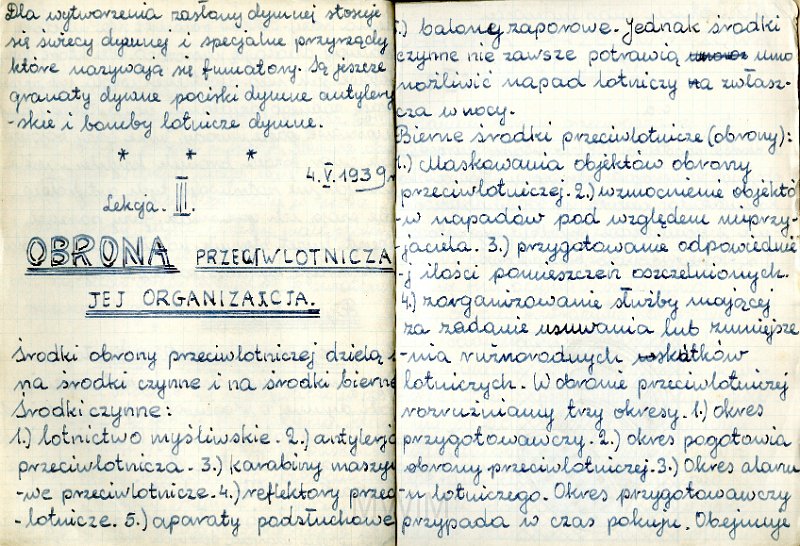 Dla wytworzenia zasłony dymnej stosuje
się świecy dymnej i specjalne przyrządy
które nazywają się fumatory. Są jeszcze
granaty dymne pociski dymne artylery-
-skie i bomby lotnicze dymne.
* * *
4.V.1939r
Lekcja. III.
OBRONA PRZECIWLOTNICZA
JEJ ORGANIZACJA.
Środki obrony przeciwlotniczej dzielą
na środki czynne i na środki bierne
Środki czynne:
1.) lotnictwo myśliwskie. 2.) artylerja
przeciwlotnicza. 3.) karabiny maszyn
-we przeciwlotnicze. 4.) reflektory przec
-lotnicze. 5.) aparaty podsłuchowe
6.) balony zaporowe. Jednak środki
czynne nie zawsze potrawią umo
możliwić napad lotniczy na zwłasz-
cza w nocy.
Bierne środki przeciwlotnicze (obrony):
1.) Maskowania objektów obrony
przeciwlotniczej. 2.) wzmocnienie objektó
-w napadów pod względem nieprzy-
-jaciela. 3.) przygotowanie odpowiednie
-j ilości pomieszczeń oszczelnionych.
4.) zorganizowanie służby mającej
za zadanie usuwania lub zmniejsze-
-nia rużnorodnych skátków
lotniczych. W obronie przeciwlotniczej
rozruzniamy trzy okresy. 1.) okres
przygotowawczy. 2.) okres pogotowia
obrony przeciwlotniczej. 3.) Okres alarm
-u lotniczego. Okres przygotowawczy
przypada w czas pokuju. Obejmuje
MWIM